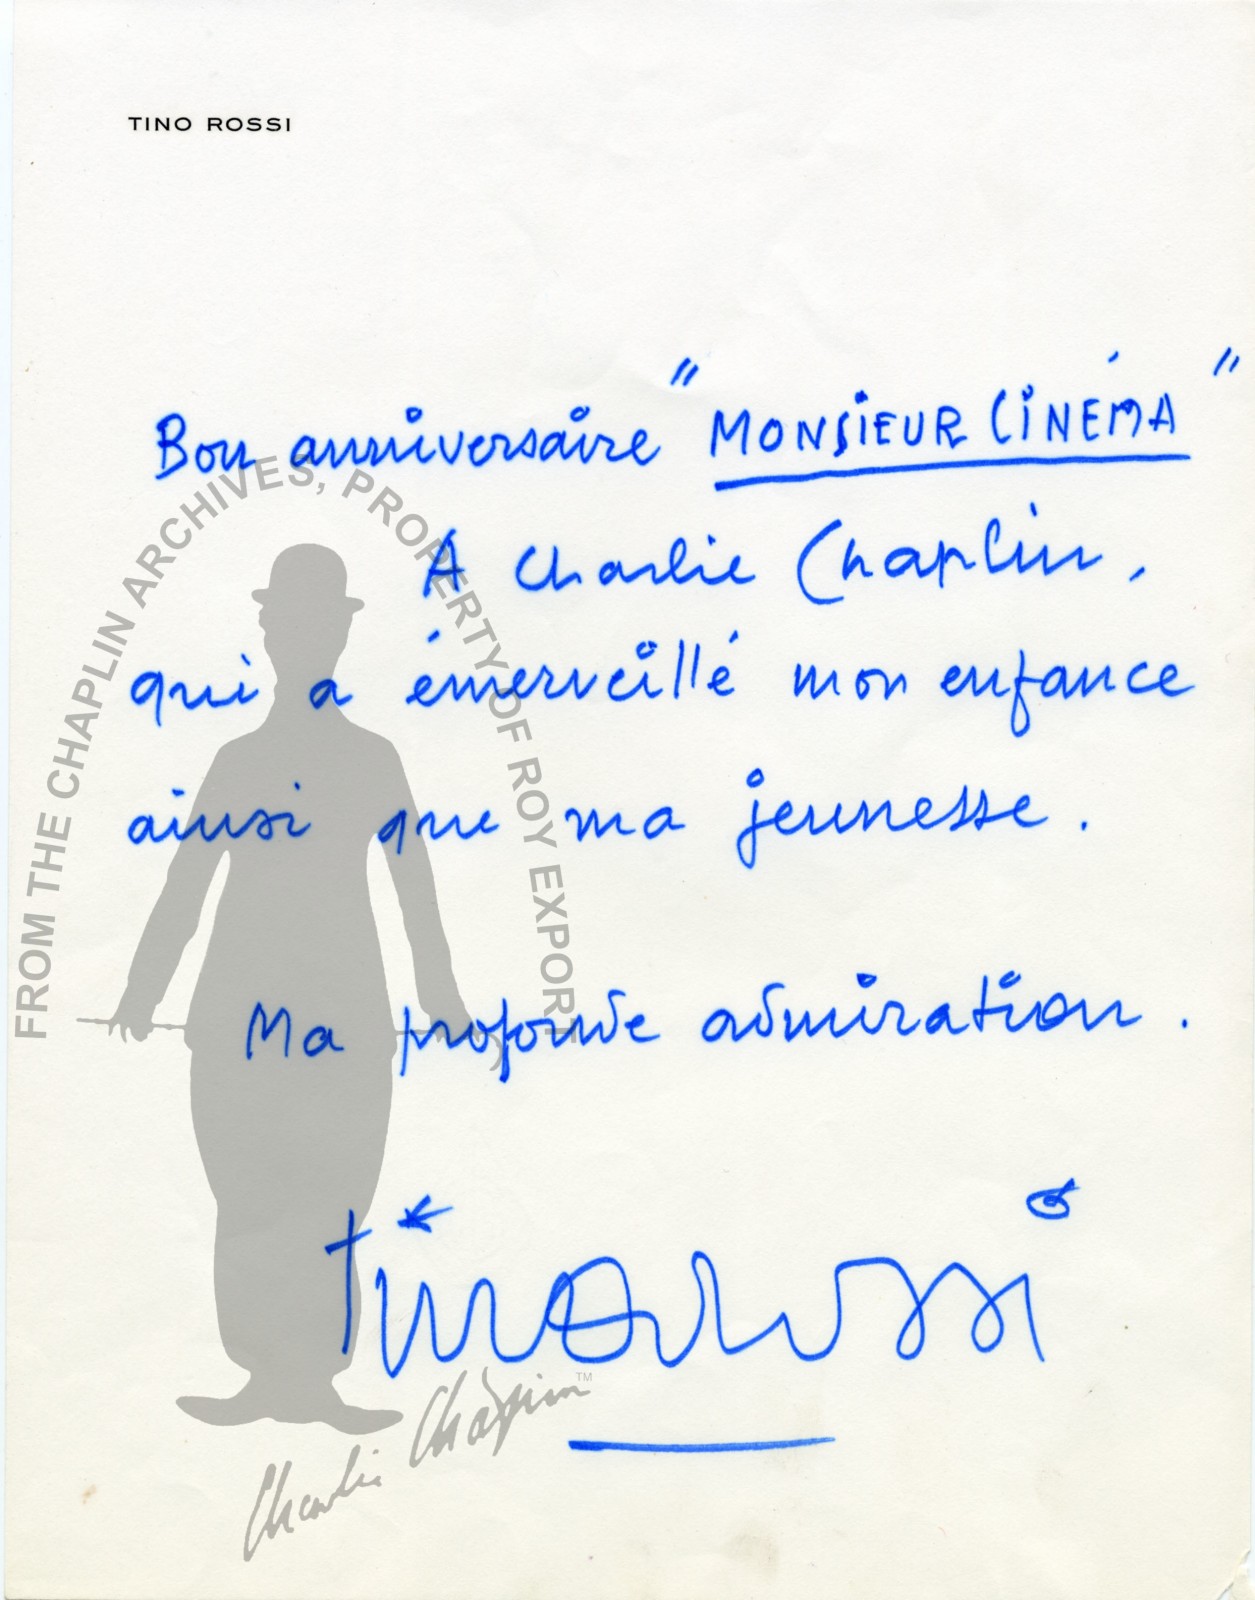 TINO ROSSI
Bon anniversaire "MONSIEUR CINÉMA"
A Charlie Chaplin,
qui a émerveillé mon enfance
ainsi que ma jeunesse.
Ma profonde admiration.
Tino Rossi
FROM THE CHAPLIN ARCHIVES, PROPERTY OF ROY EXPORT
Charlie Chaplin™